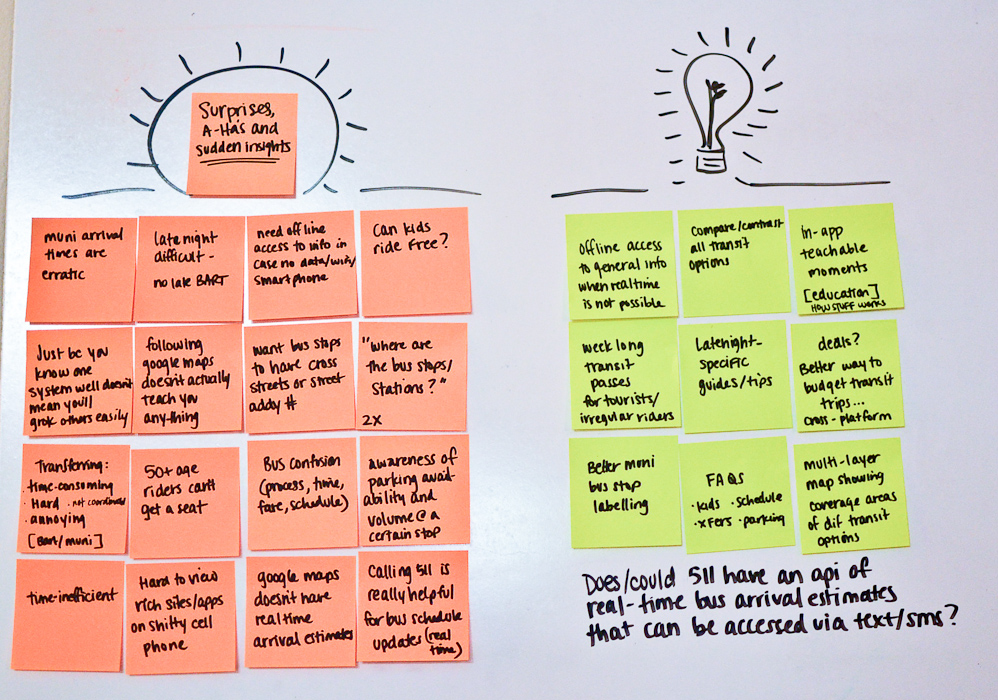 Surprises,
A-Ha's and
sudden insights
muni arrival
times are
erratic
late night
difficult -
no late BART
need offline
access to info in
case no data/wifi/
smartphone
Can kids
ride free?
Just bc you
know one
system well doesn't
mean you'll
grok others easily
following
google maps
doesn't actually
teach you
anything
want bus stops
to have cross
streets or street
addy #
"Where are
the bus stops/
Stations?"
2x
Transferring:
· time-consuming
· Hard · not coordinated
· annoying
[Bart/muni]
50+ age
riders can't
get a seat
Bus confusion
(process, time,
fare, schedule)
awareness of
parking avail-
ability and
volume @ a
certain stop
time-inefficient
Hard to view
rich sites/apps
on shitty cell
phone
google maps
doesn't have
real time
arrival estimates
Calling 511 is
really helpful
for bus schedule
updates (real
time)
offline access
to general info
when realtime
is not possible
Compare/contrast
all transit
options
in-app
teachable
moments
[education]
How stuff works
week long
transit
passes
for tourists/
irregular riders
Latenight-
specific
guides/tips
deals?
Better way to
budget transit
trips...
cross-platform
Better muni
bus stop
labelling
FAQs
· kids · schedule
· xfers · parking
multi-layer
map showing
coverage areas
of dif transit
options
Does/could 511 have an api of
real-time bus arrival estimates
that can be accessed via text/sms?